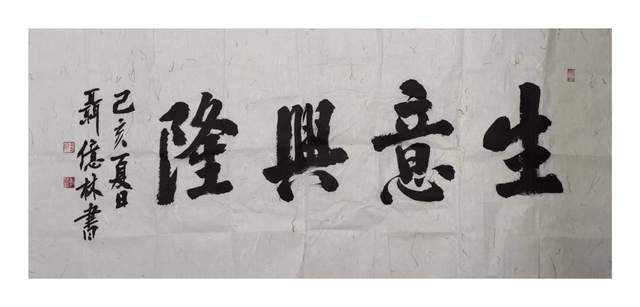 生意興隆
己亥夏日
聶億林書